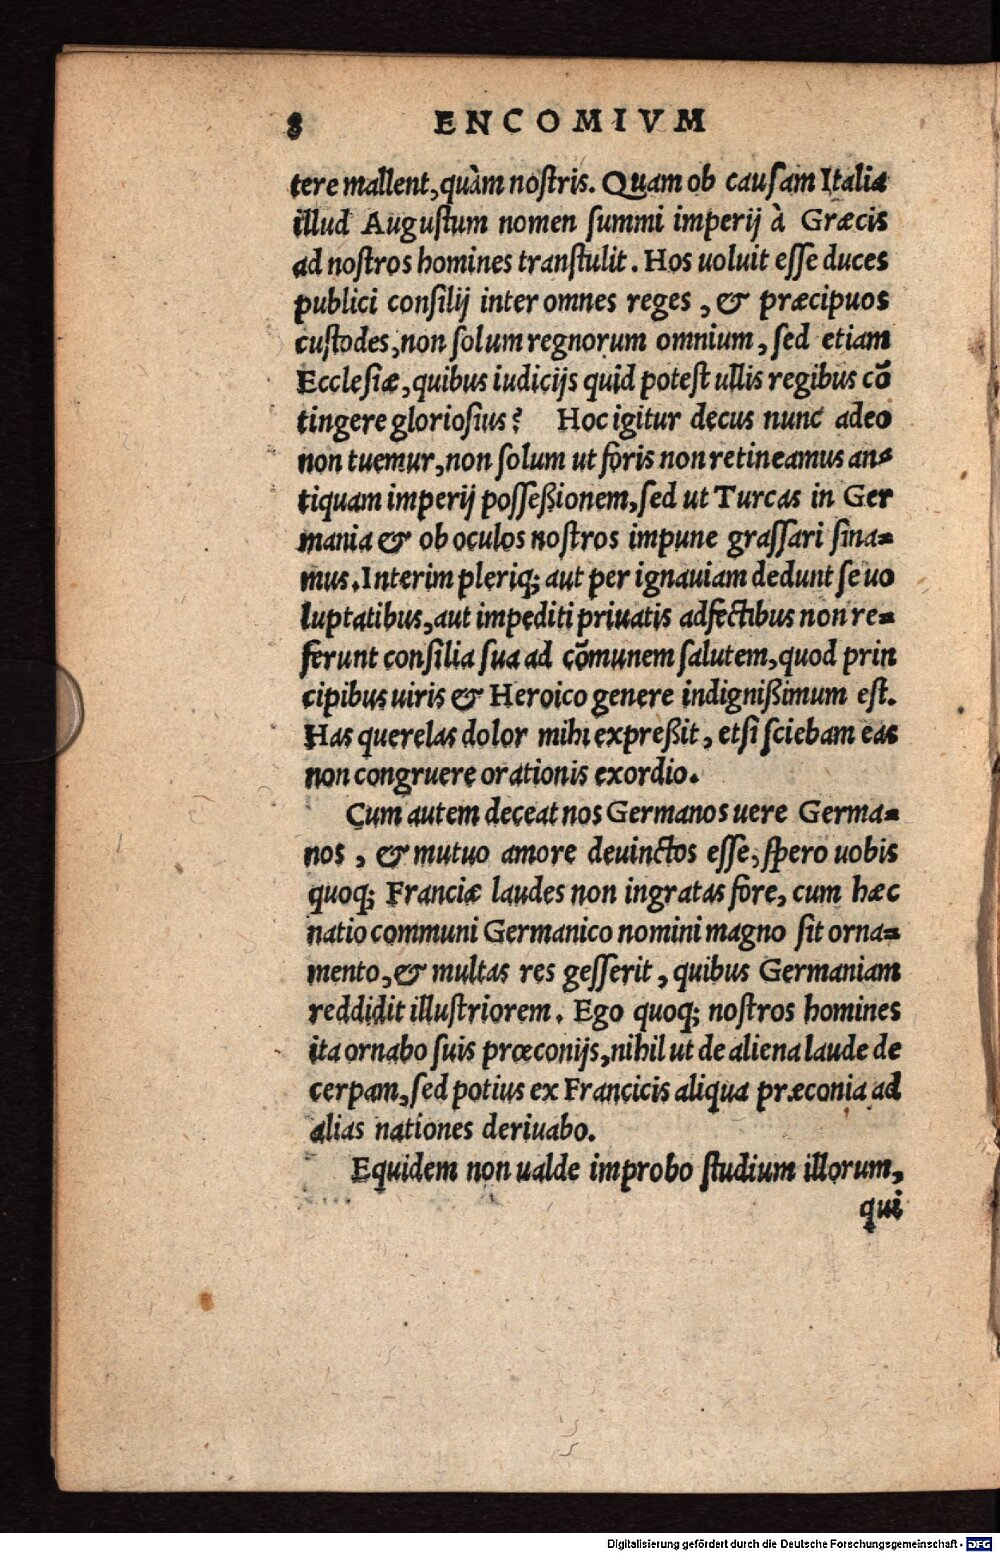 8 ENCOMIVM
tere mallent, quàm nostris. Quam ob causam Italia
illud Augustum nomen summi imperij à Græcis
ad nostros homines transtulit. Hos uoluit esse duces
publici consilij inter omnes reges, & præcipuos
custodes, non solum regnorum omnium, sed etiam
Ecclesiæ, quibus iudicijs quid potest ullis regibus cō
tingere gloriosius? Hoc igitur decus nunc adeo
non tuemur, non solum ut foris non retineamus an=
tiquam imperij posseßionem, sed ut Turcas in Ger
mania & ob oculos nostros impune grassari sina=
mus. Interim pleriq; aut per ignauiam dedunt se uo
luptatibus, aut impediti priuatis adfectibus non re=
ferunt consilia sua ad cōmunem salutem, quod prin
cipibus uiris & Heroico genere indignißimum est.
Has querelas dolor mihi expreßit, etsi sciebam eas
non congruere orationis exordio.
Cum autem deceat nos Germanos uere Germa=
nos, & mutuo amore deuinctos esse, spero uobis
quoq; Franciæ laudes non ingratas fore, cum hæc
natio communi Germanico nomini magno sit orna=
mento, & multas res gesserit, quibus Germaniam
reddidit illustriorem. Ego quoq; nostros homines
ita ornabo suis præconijs, nihil ut de aliena laude de
cerpam, sed potius ex Francicis aliqua præconia ad
alias nationes deriuabo.
Equidem non ualde improbo studium illorum,
qui
Digitalisierung gefördert durch die Deutsche Forschungsgemeinschaft - DFG